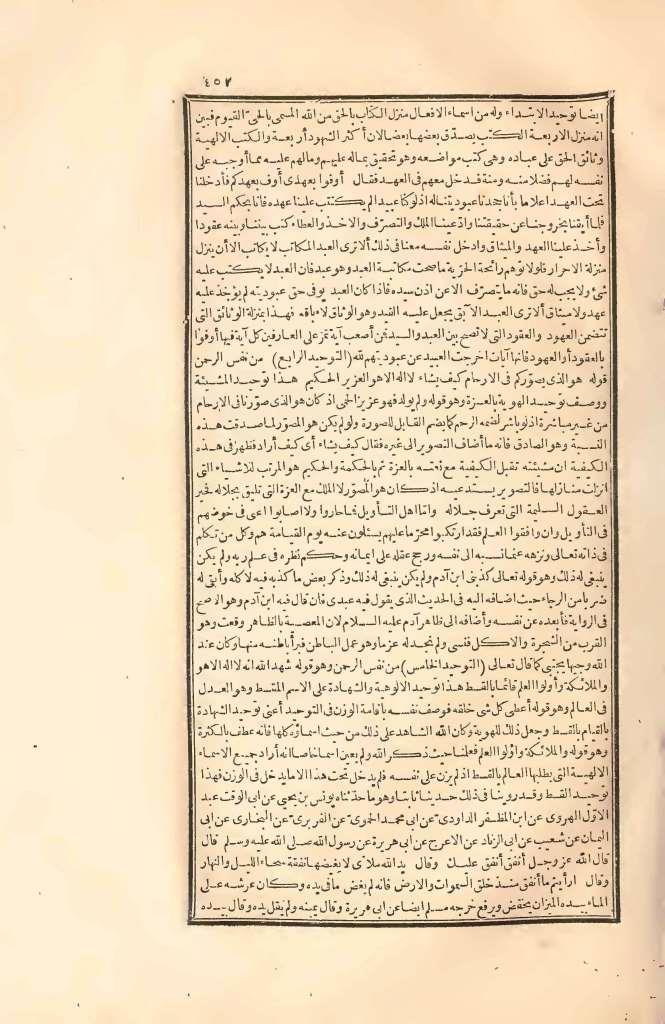 ٤٥٧
ايضا توحيد الابتداء وله من اسماء الافعال منزل الكتاب بالحق من الله المسمى بالحى القيوم فبين
انه منزل الاربعة الكتب يصدّق بعضها بعضا لان أكثر الشهود أربعة والكتب الالهية
وثائق الحق على عباده وهى كتب مواضعه وهو تحقيق بماله عليهم ومالهم عليه مما أوجبه على
نفسه لهم فضلا منه ومنة فدخل معهم فى العهد فقال أوفوا بعهدى أوف بعهدكم فأدخلنا
تحت العهد اعلاما بأنا جحدنا عبوديتنا له اذ لو كنا عبيدا لم يكتتب علينا عهده فانا بحكم السيد
فلما أبقنا بخروجنا عن حقيقتنا وادّعينا الملك والتصرّف والاخذ والعطاء كتب بيننا وبينه عقودا
وأخذ علينا العهد والميثاق وادخل نفسه معنا فى ذلك ألا ترى العبد المكاتب لا يكاتب الا أن ينزل
منزلة الاحرار فلولا توهم رائحة الحرّية ما صحت مكاتبة العبد وهو عبد فان العبد لا يكتب عليه
شئ ولا يجب له حق فانه ما يتصرّف الا عن اذن سيده فاذا كان العبد يوفى حق عبوديته لم يؤخذ عليه
عهد ولا ميثاق ألا ترى العبد الآبق يجعل عليه القيد وهو الوثاق لاباقه فهذا بمنزلة الوثائق التى
تتضمن العهود والعقود التى لا تصح بين العبد والسيد فمن أصعب آية تمرّ على العارفين كل آية فيها أوفوا
بالعقود أو العهود فانها آيات اخرجت العبيد عن عبوديتهم لله (التوحيد الرابع) من نفس الرحمن
قوله هو الذى يصوّركم فى الارحام كيف يشاء لا اله الا هو العزيز الحكيم هذا توحيد المشيئة
ووصف توحيد الهوية بالعزة وهو قوله ولم يولد فهو عزيز الحمى اذ كان هو الذى صوّرنا فى الارحام
من غير مباشرة اذ لو باشر لضمه الرحم كما يضم القابل للصورة ولو لم يكن هو المصوّر لما صدقت هذه
النسبة وهو الصادق فانه ما أضاف التصوير الى غيره فقال كيف يشاء أى كيف أراد فظهر فى هذه
الكيفية ان مشيئته تقبل الكيفية مع نعته بالعزة ثم بالحكمة والحكيم هو المرتب للاشياء التى
انزلت منازلها فالتصوير يستدعيه اذ كان هو المصوّر لا الملك مع العزة التى تليق بجلاله فحير
العقول السليمة التى تعرف جلاله واما اهل التأويل فما حاروا ولا اصابوا اعنى فى خوضهم
فى التأويل وان وافقوا العلم فقد ارتكبوا محرّما عليهم يسئلون عنه يوم القيامة هم وكل من تكلم
فى ذاته تعالى ونزهه عما نسبه الى نفسه ورجح عقله على ايمانه وحكم نظره فى علم ربه ولم يكن
ينبغى له ذلك وهو قوله تعالى كذبنى ابن آدم ولم يكن ينبغى له ذلك وذكر بعض ما كذبه فيه لا كله وأبقى له
ضربا من الرجاء حيث اضافه اليه فى الحديث الذى يقول فيه عبدى فان قال فيه ابن آدم وهو الاصح
فى الرواية فأبعده عن نفسه وأضافه الى ظاهر آدم عليه السلام لان المعصية بالظاهر وقعت وهو
القرب من الشجرة والاكل فنسى ولم نجد له عزما وهو عمل الباطن فبرأ باطنه منها وكان عند
الله وجيها مجتبى كما قال تعالى (التوحيد الخامس) من نفس الرحمن وهو قوله شهد الله انه لا اله الا هو
والملائكة وأولوا العلم قائما بالقسط هذا توحيد الالوهية والشهادة على الاسم المقسط وهو العدل
فى العالم وهو قوله أعطى كل شئ خلقه فوصف نفسه باقامة الوزن فى التوحيد أعنى توحيد الشهادة
بالقيام بالقسط وجعل ذلك للهوية وكان الله الشاهد على ذلك من حيث اسماؤه كلها فانه عطف بالكثرة
وهو قوله والملائكة وأولوا العلم فعلمنا حيث ذكر الله ولم يعين اسما خاصا انه أراد جميع الاسماء
الالهية التى يطلبها العالم بالقسط اذ لم يزن على نفسه فلم يدخل تحت هذا الا ما يدخل فى الوزن فهذا
توحيد القسط وقد روينا فى ذلك حديثا ثابتا وهو ما حدّثناه يونس بن يحيى عن ابى الوقت عبد
الاوّل الهروى عن ابن المظفر الداودى عن ابى محمد الحموى عن الفربرى عن البخارى عن ابى
اليمان عن شعيب عن ابى الزناد عن الاعرج عن ابى هريرة عن رسول الله صلى الله عليه وسلم قال
قال الله عز وجل أنفق أنفق عليك وقال يد الله ملأى لا يغيضها نفقة سحاء الليل والنهار
وقال ارأيتم ما أنفق منذ خلق السموات والارض فانه لم يغض ما فى يده وكان عرشه على
الماء بيده الميزان يخفض ويرفع خرجه مسلم ايضا عن ابى هريرة وقال يمينه ولم يقل يده وقال بيده